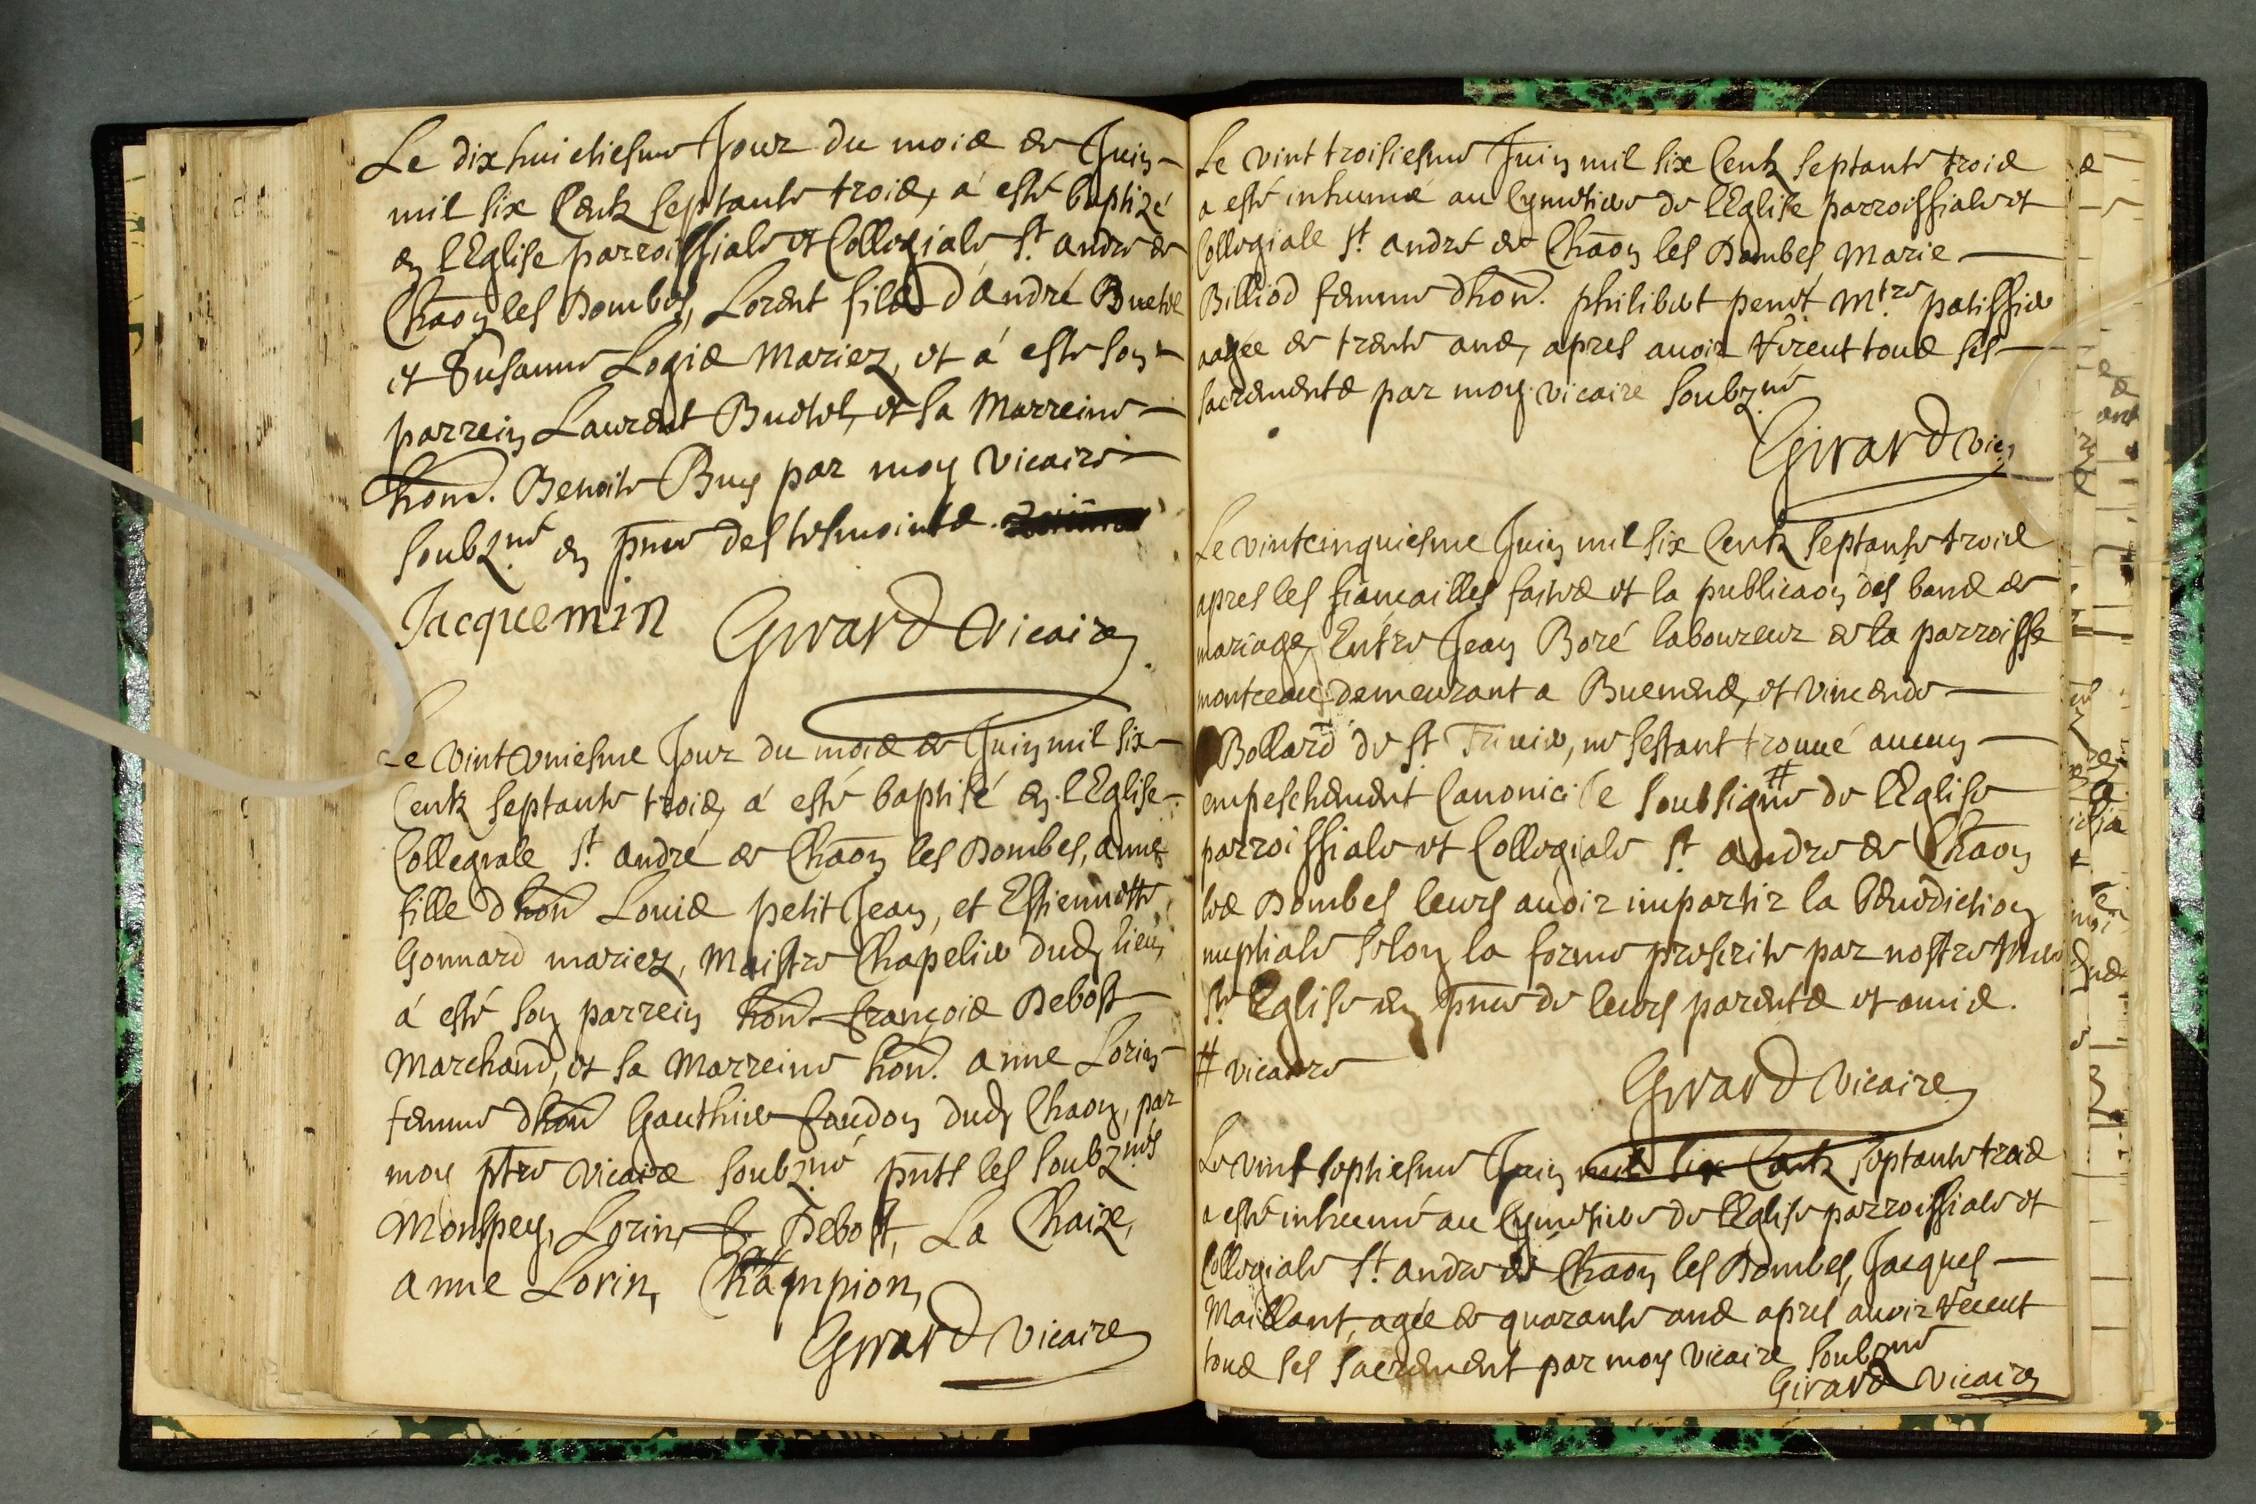 Le dix huictiesme Jour du mois de Juin
mil six Centz septante trois, á esté baptizé
en lEglise parroissiale et Collegiale St. andre de
Chaōn les Dombes, Lorent fils d'André Buetel
et Susanne Logis Mariez, et á esté son
parrein Laurent Buetel, et sa Marreine
hon̄. Benoite Buy par moy vicaire
soubz.né en pn̄ce des tesmoints.
Jacquemin Girard vicaire
Le vint uniesme Jour du mois de Juin mil six
Centz septante trois, á esté baptisé en lEglise
Collegiale St. andré de Chaōn les Dombes, anne
fille dhon̄ Louis petit Jean, et Estiennette
Gonnard mariez, Maistre Chapelier dud. lieu,
á esté son parrein hon̄. françois Debost
Marchand, et sa Marreine hon̄. anne Lorin
femme dhon̄ Gauthier faudon dud. Chaon, par
moy ptre vicaire soubz.né pn̄ts les soubz.nés
Monspey, Lorin, Debost, La Chaize,
anne Lorin, Champion,
Girard vicaire
Le vint troisiesme Juin mil six Centz septante trois
a esté inhumé au Cymetiere de lEglise parroissiale et
Collegiale St. andré de Chaōn les Dombes Marie
Billiod femme dhon̄. philibert penet Mtre patissier
aagée de trente ans, apres auoir receut tous ses
sacrements par moy vicaire soubz.né
Girard vice
Le vintcinquiesme Juin mil six Centz septante trois
apres les fiancailles faites et la publicaōn des bans de
mariage, Entre Jean Boré laboureur de la parroisse
montceau demeurant a Buenens, et Vincende
Bollard de St. Triuier, ne sestant trouué aucun
empeschement Canonic Je soubsigné # de lEglise
parroissiale et Collegiale St andre de Chaōn
les Dombes leurs auoir impartir la benediction
nuptiale selon la forme prescrite par nostre Mere
Ste Eglise en pn̄ce de leurs parents et amis.
# vicaire
Girard vicaire
Le vint septiesme Juin mil six Centz septante trois
a esté inhumé au Cymetiere de lEglise parroissiale et
Collegiale St. andre de Chaōn les Dombes, Jacques
Maillant, agée de quarante ans apres auoir receut
tous ses sacrement par moy vicaire soubz.né
Girard vicaire